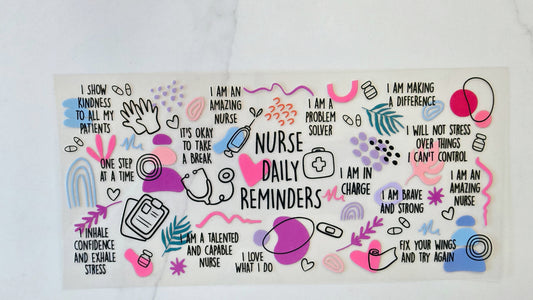 I SHOW
KINDNESS
TO ALL MY
PATIENTS
I AM AN
AMAZING
NURSE
I AM A
PROBLEM
SOLVER
I AM MAKING
A DIFFERENCE
IT'S OKAY
TO TAKE
A BREAK
I WILL NOT STRESS
OVER THINGS
I CAN'T CONTROL
ONE STEP
AT A TIME
NURSE
DAILY
REMINDERS
I AM IN
CHARGE
I AM BRAVE
AND STRONG
I AM AN
AMAZING
NURSE
I INHALE
CONFIDENCE
AND EXHALE
STRESS
I AM A TALENTED
AND CAPABLE
NURSE
I LOVE
WHAT I DO
FIX YOUR WINGS
AND TRY AGAIN